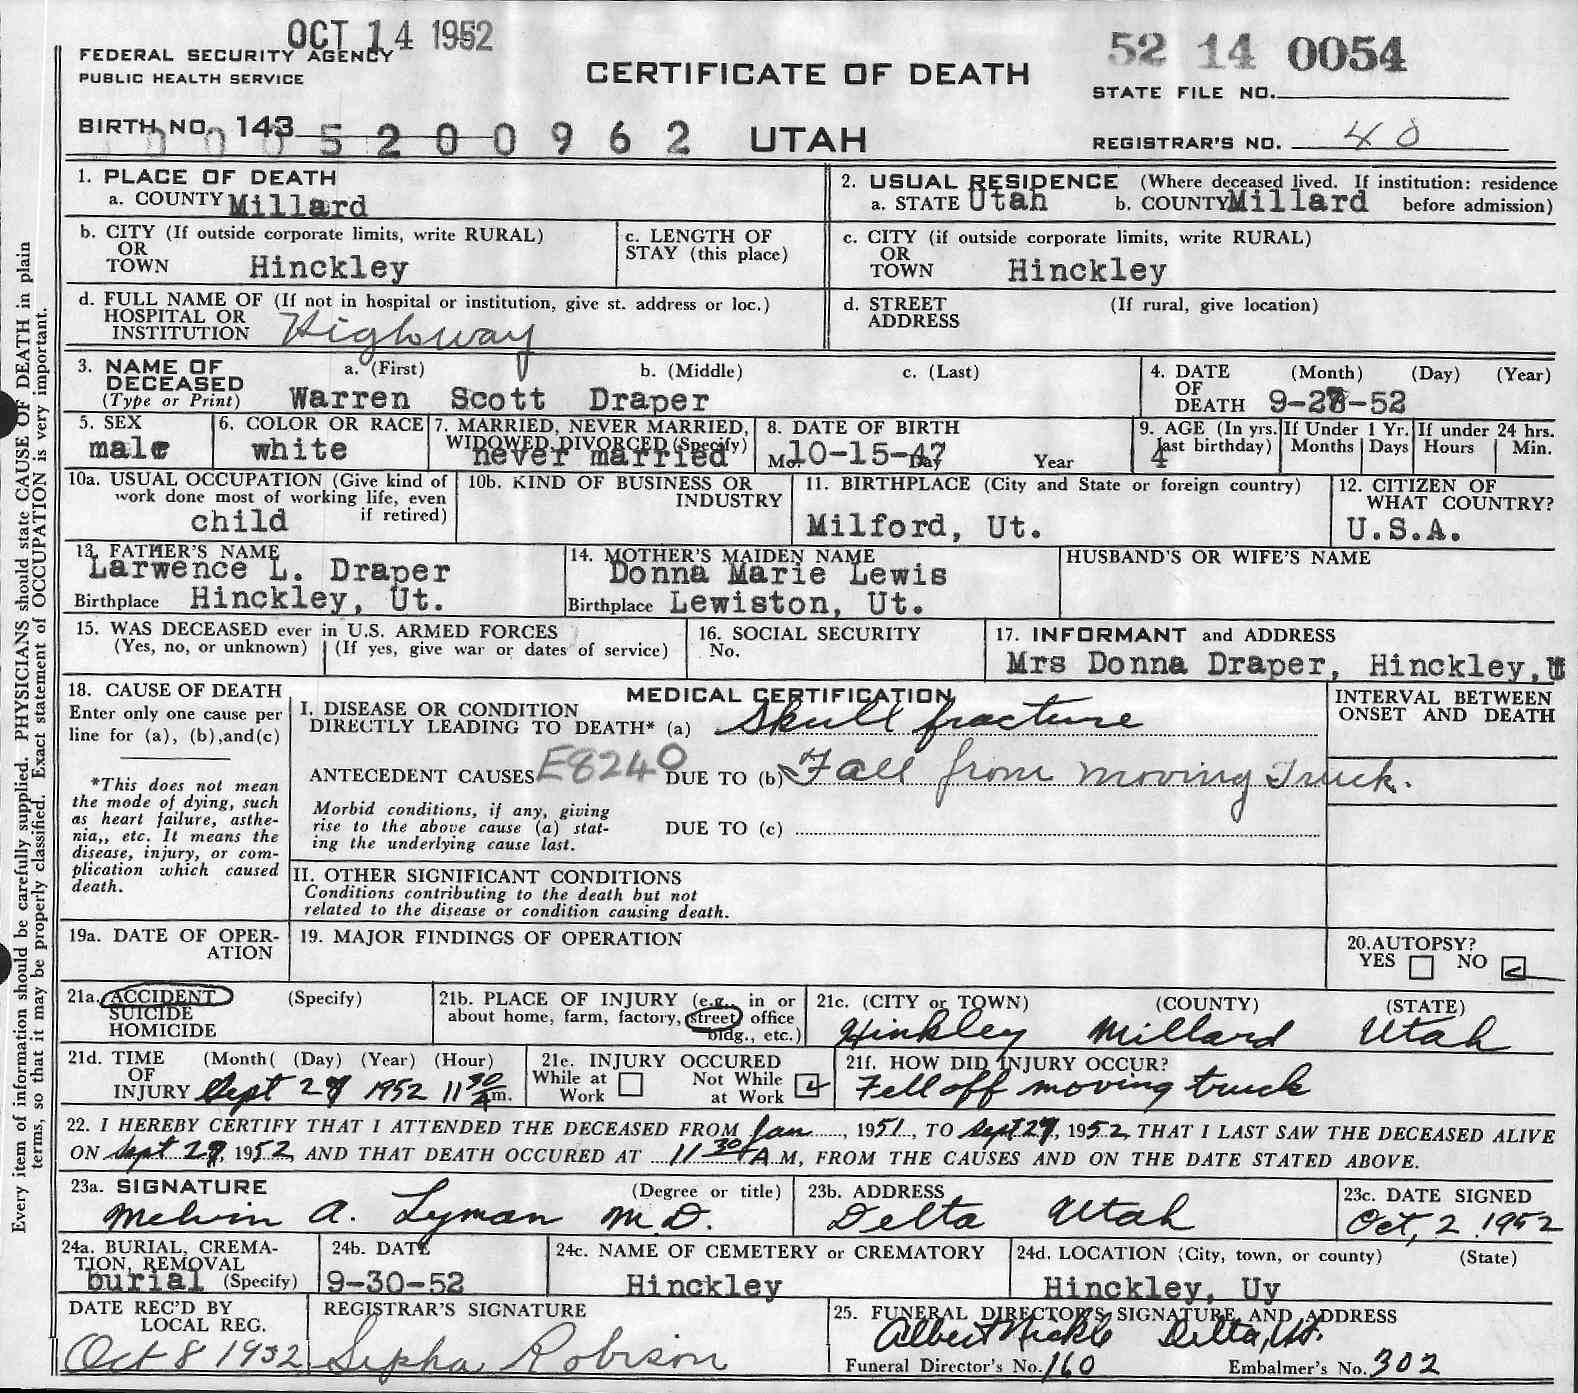 OCT 14 1952
FEDERAL SECURITY AGENCY
PUBLIC HEALTH SERVICE
CERTIFICATE OF DEATH
52 14 0054
STATE FILE NO.
BIRTH NO. 143
5200962
UTAH
REGISTRAR'S NO. 40
1. PLACE OF DEATH
a. COUNTY Millard
2. USUAL RESIDENCE (Where deceased lived. If institution: residence before admission)
a. STATE Utah b. COUNTY Millard
b. CITY (If outside corporate limits, write RURAL)
OR
TOWN Hinckley
c. LENGTH OF
STAY (this place)
c. CITY (if outside corporate limits, write RURAL)
OR
TOWN Hinckley
d. FULL NAME OF (If not in hospital or institution, give st. address or loc.)
HOSPITAL OR
INSTITUTION Highway
d. STREET (If rural, give location)
ADDRESS
3. NAME OF DECEASED
(Type or Print)
a. (First) b. (Middle) c. (Last)
Warren Scott Draper
4. DATE (Month) (Day) (Year)
OF
DEATH 9-2-52
5. SEX
male
6. COLOR OR RACE
white
7. MARRIED, NEVER MARRIED,
WIDOWED, DIVORCED (Specify)
never married
8. DATE OF BIRTH
Mo. Day Year
10-15-47
9. AGE (In yrs. last birthday)
4
If Under 1 Yr.
Months Days
If under 24 hrs.
Hours Min.
10a. USUAL OCCUPATION (Give kind of
work done most of working life, even
if retired)
child
10b. KIND OF BUSINESS OR
INDUSTRY
11. BIRTHPLACE (City and State or foreign country)
Milford, Ut.
12. CITIZEN OF
WHAT COUNTRY?
U.S.A.
13. FATHER'S NAME
Larwence L. Draper
Birthplace Hinckley, Ut.
14. MOTHER'S MAIDEN NAME
Donna Marie Lewis
Birthplace Lewiston, Ut.
HUSBAND'S OR WIFE'S NAME
15. WAS DECEASED ever in U.S. ARMED FORCES
(Yes, no, or unknown) (If yes, give war or dates of service)
16. SOCIAL SECURITY
No.
17. INFORMANT and ADDRESS
Mrs Donna Draper, Hinckley,
18. CAUSE OF DEATH
Enter only one cause per
line for (a), (b),and(c)
*This does not mean
the mode of dying, such
as heart failure, asthe-
nia,, etc. It means the
disease, injury, or com-
plication which caused
death.
MEDICAL CERTIFICATION
I. DISEASE OR CONDITION
DIRECTLY LEADING TO DEATH* (a) Skull fracture
ANTECEDENT CAUSES E8240 DUE TO (b) Fall from moving Truck.
Morbid conditions, if any, giving
rise to the above cause (a) stat-
ing the underlying cause last.
DUE TO (c)
INTERVAL BETWEEN
ONSET AND DEATH
II. OTHER SIGNIFICANT CONDITIONS
Conditions contributing to the death but not
related to the disease or condition causing death.
19a. DATE OF OPER-
ATION
19. MAJOR FINDINGS OF OPERATION
20. AUTOPSY?
YES NO
21a. ACCIDENT (Specify)
SUICIDE
HOMICIDE
21b. PLACE OF INJURY (e.g., in or
about home, farm, factory, street, office
bldg., etc.)
21c. (CITY or TOWN) (COUNTY) (STATE)
Hinkley Millard Utah
21d. TIME (Month( (Day) (Year) (Hour)
OF
INJURY Sept 2 1952 11 30 A m.
21e. INJURY OCCURED
While at Work Not While at Work
21f. HOW DID INJURY OCCUR?
Fell off moving truck
22. I HEREBY CERTIFY THAT I ATTENDED THE DECEASED FROM Jan, 1951, TO Sept 2, 1952, THAT I LAST SAW THE DECEASED ALIVE
ON Sept 2, 1952, AND THAT DEATH OCCURED AT 11 30 A M, FROM THE CAUSES AND ON THE DATE STATED ABOVE.
23a. SIGNATURE (Degree or title)
Melvin A. Lyman M.D.
23b. ADDRESS
Delta Utah
23c. DATE SIGNED
Oct, 2 1952
24a. BURIAL, CREMA-
TION, REMOVAL
burial (Specify)
24b. DATE
9-30-52
24c. NAME OF CEMETERY or CREMATORY
Hinckley
24d. LOCATION (City, town, or county) (State)
Hinckley, Uy
DATE REC'D BY
LOCAL REG.
Oct 8 1952
REGISTRAR'S SIGNATURE
Robison
25. FUNERAL DIRECTOR'S SIGNATURE AND ADDRESS
Albert Nickle Delta, Ut.
Funeral Director's No. 160 Embalmer's No. 302
Every item of information should be carefully supplied. PHYSICIANS should state CAUSE OF DEATH in plain
terms, so that it may be properly classified. Exact statement of OCCUPATION is very important.